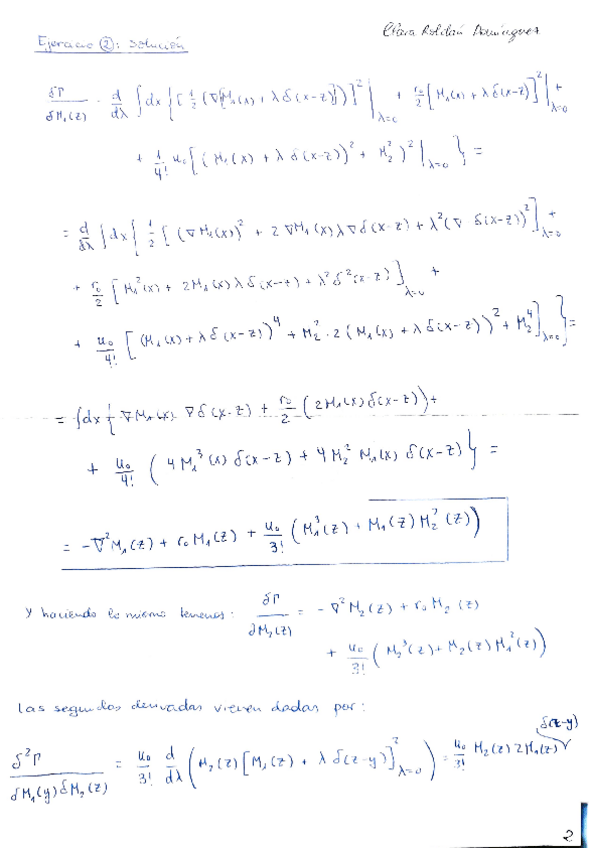 Clara Roldán Domínguez
Ejercicio ②: Solución
δΓ/δM₁(z) = d/dλ ∫dx { [½ (∇[M₁(x) + λ δ(x-z)])]² |_{λ=0} + r₀/2 [M₁(x) + λ δ(x-z)]² |_{λ=0} +
+ 1/4! u₀ [(M₁(x) + λ δ(x-z))² + M₂²)² |_{λ=0} } =
= d/dλ ∫dx { ½ [(∇M₁(x))² + 2 ∇M₁(x) λ ∇δ(x-z) + λ² (∇ δ(x-z))²]_{λ=0} +
+ r₀/2 [M₁²(x) + 2M₁(x) λ δ(x-z) + λ² δ²(x-z)]_{λ=0} +
+ u₀/4! [(M₁(x) + λ δ(x-z))⁴ + M₂² · 2 (M₁(x) + λ δ(x-z))² + M₂⁴]_{λ=0} } =
= ∫dx { ∇M₁(x) ∇δ(x-z) + r₀/2 (2M₁(x) δ(x-z)) +
+ u₀/4! (4M₁³(x) δ(x-z) + 4M₂² M₁(x) δ(x-z) } =
= -∇²M₁(z) + r₀M₁(z) + u₀/3! (M₁³(z) + M₁(z) M₂²(z))
Y haciendo lo mismo tenemos: δΓ/δM₂(z) = -∇²M₂(z) + r₀ M₂(z)
+ u₀/3! (M₂³(z) + M₂(z) M₁²(z))
Las segundas derivadas vienen dadas por:
δ²Γ/δM₁(y)δM₂(z) = u₀/3! d/dλ (M₂(z) [M₁(z) + λ δ(z-y)]²_{λ=0}) = u₀/3! M₂(z) 2M₁(z) δ(z-y)
2